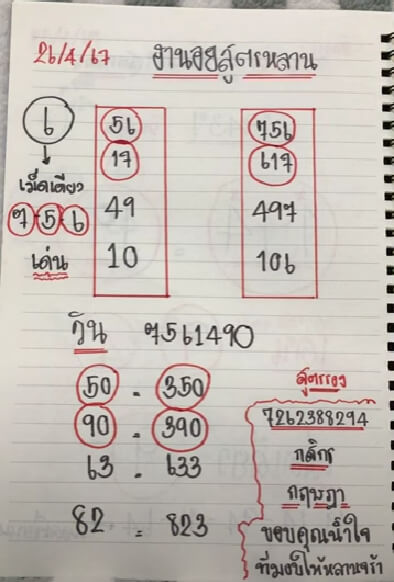 26/4/67 ฮานอยสูตรหลาน
6 56 756
17 617
เม็ดเดียว
7-5-6 49 497
เด่น 10 106
วิน 7561490
50 - 350 สูตรรอง
90 - 390 7262388294
63 - 633 กสิกร
กฤษฎา
82 - 823 ขอบคุณน้ำใจ
ที่มอบให้หลานจร้า